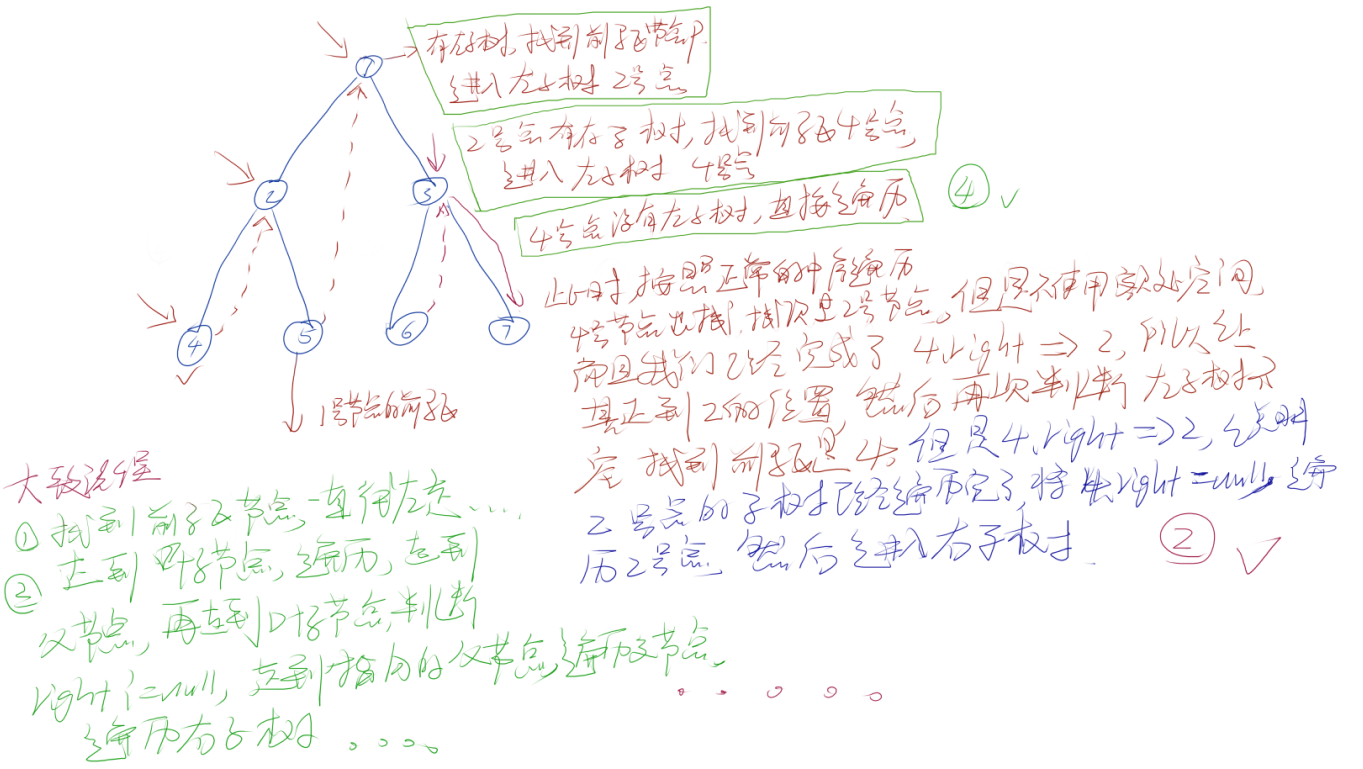 1
有左子树,找到前驱节点
进入左子树 2号点
2号点有左子树,找到前驱4号点,
进入左子树 4号点
4号点没有左子树,直接遍历
④ ✓
2
3
4
5
6
7
1号节点的前驱
此时,按照正常的中序遍历
4号节点出栈,栈顶是2号节点。但是不使用额外空间,
而且我们已经完成了 4.right => 2, 所以让
其走到2的位置,然后再次判断 左子树不
空 找到前驱是 4, 但是4.right => 2, 说明
2号点的子树已经遍历完了,将其right = null, 遍
历2号点,然后走进入右子树.
② ✓
大致流程
① 找到前驱节点,一直往左走.....,
② 走到叶子节点,遍历,走到
父节点,再走到叶子节点,判断
right != null, 走到指向的父节点,遍历父节点,
遍历右子树 。。。。